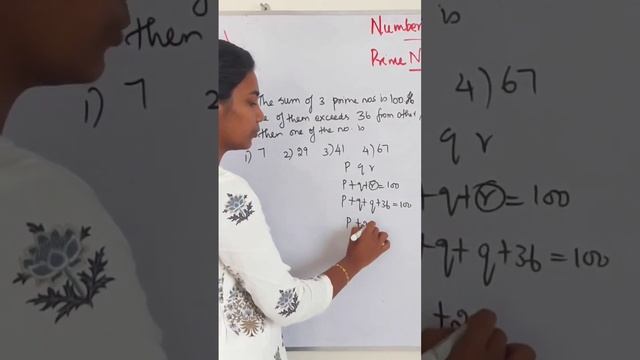 Number
Prime N
The sum of 3 prime nos is 100 &
of them exceeds 36 from other,
then one of the no. is
1) 7 2) 29 3) 41 4) 67
P q r
P + q + r = 100
P + q + q + 36 = 100
P + 2
then
1) 7
2
is
4) 67
r
+ q + r = 100
+ q + q + 36 = 100
+ 2